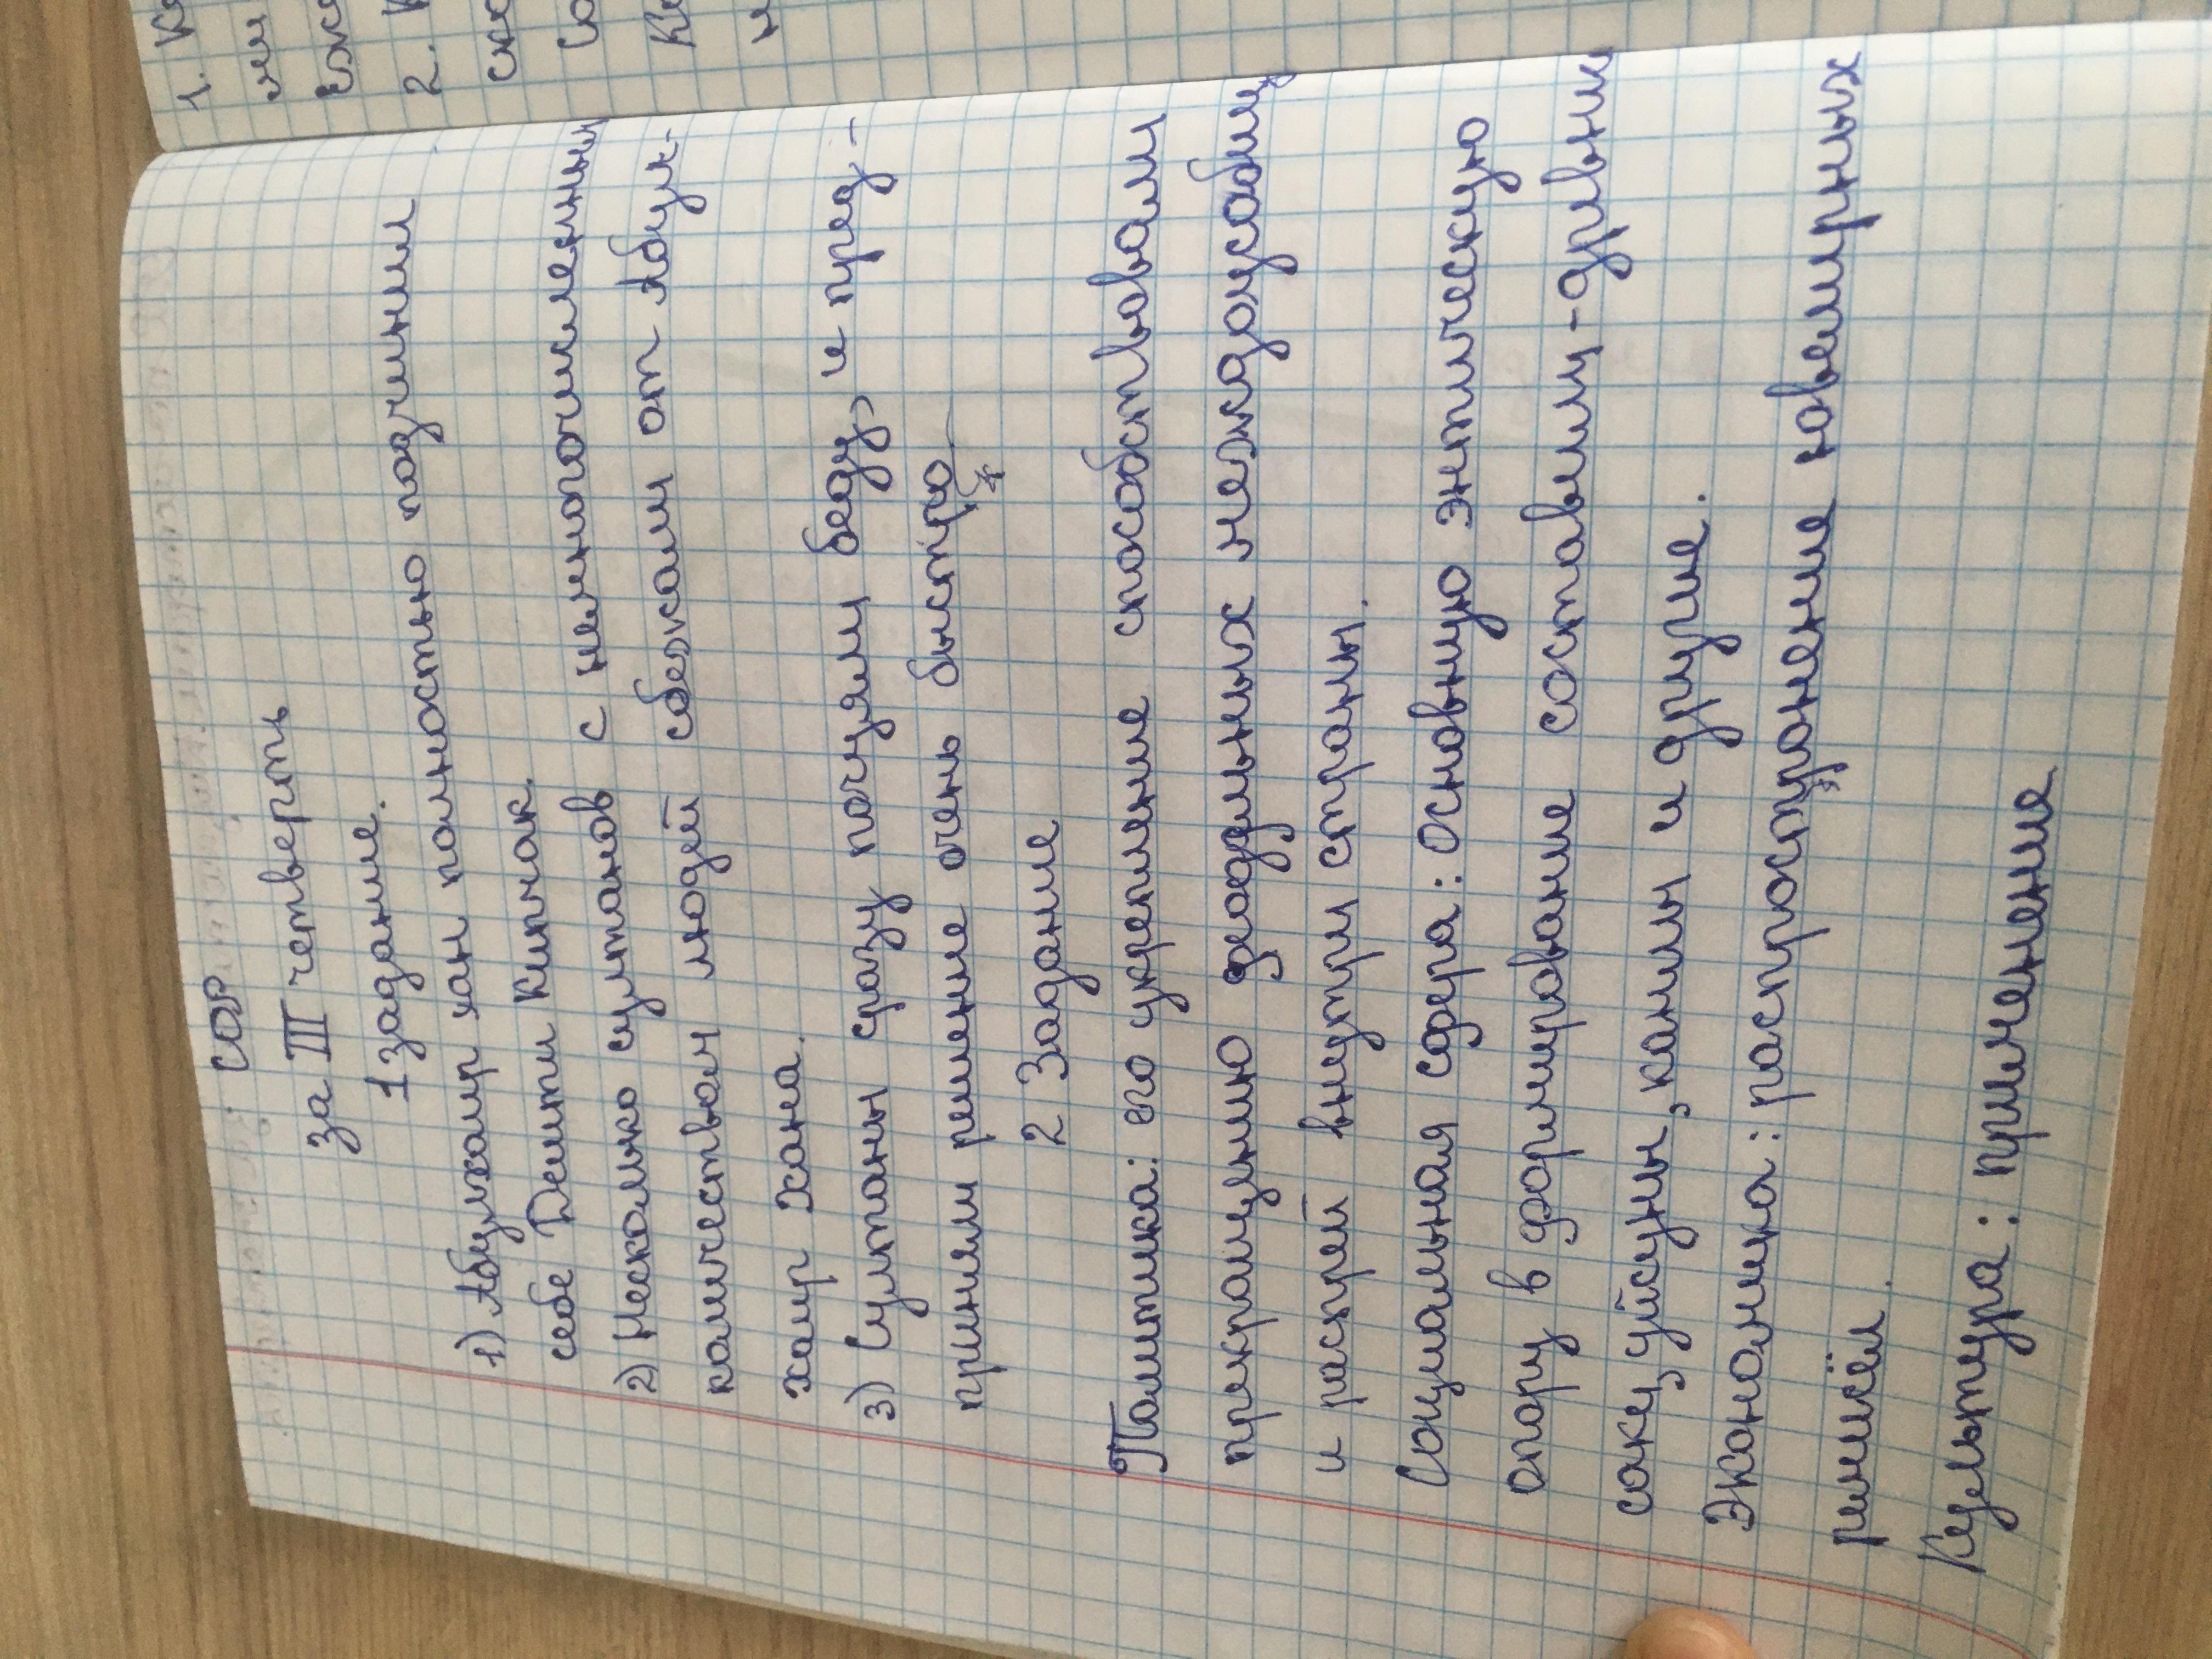 СОР
за III четверть
1 задание.
1) Абулхаир хан полностью подчинил
себе Дешти Кипчак.
2) Несколько султанов с немногочисленным
количеством людей сбежали от Абул-
хаир хана.
3) Султаны сразу почуяли беду, и пред-
приняли решение очень быстро
2 Задание
Политика: его укрепление способствовали
прекращению феодальных междоусобиц
и распрей внутри страны.
Социальная сфера: основную этническую
опору в формирование составили-древние
саки, уйсуны, канлы и другие.
Экономика: распростронение ювелирных
ремёсел.
Культура: применение
1. Ка
2. К
Со